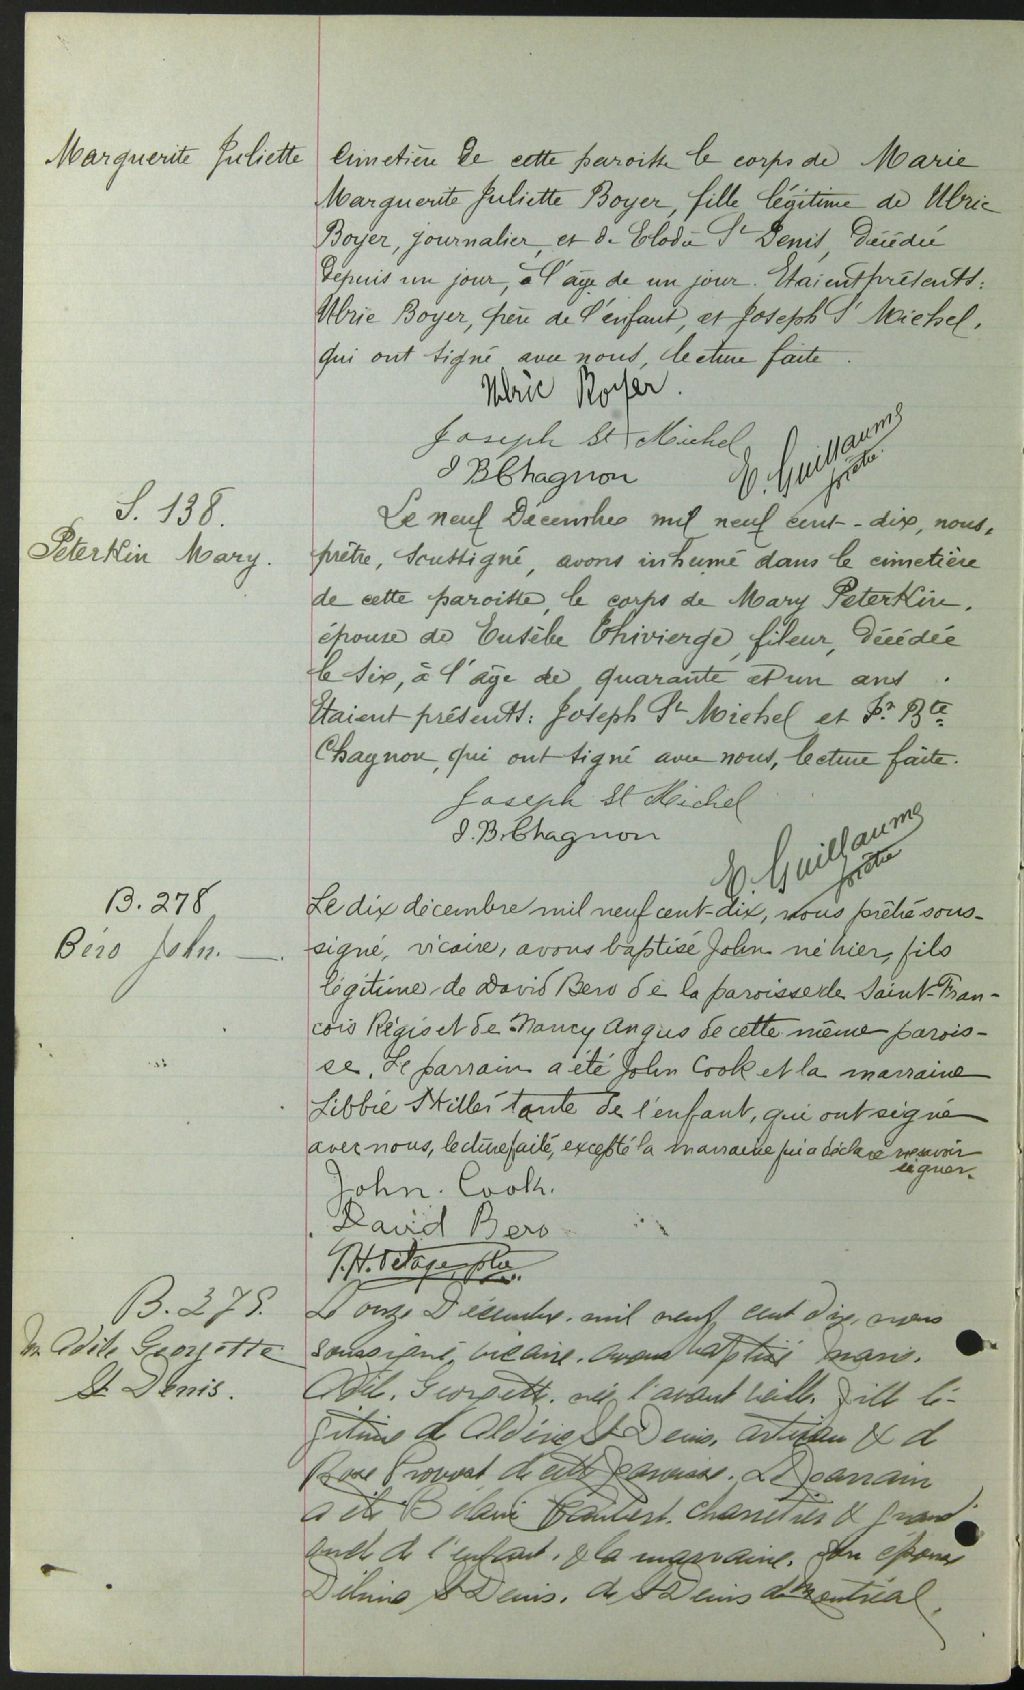 Marguerite Juliette
cimetière de cette paroisse le corps de Marie
Marguerite Juliette Boyer, fille légitime de Ulric
Boyer, journalier, et de Elodie St Denis, décédée
depuis un jour, à l'âge de un jour. Etaient présents:
Ulric Boyer, père de l'enfant, et Joseph St Michel,
qui ont signé avec nous, lecture faite.
Ulric Boyer.
Joseph St Michel
J B Chagnon
E. Guillaume
prêtre.
S. 138.
Peterkin Mary.
Le neuf Décembre mil neuf cent-dix, nous,
prêtre, soussigné, avons inhumé dans le cimetière
de cette paroisse, le corps de Mary Peterkin,
épouse de Eusèbe Thivierge, fileur, décédée
le six, à l'âge de quarante et un ans.
Etaient présents: Joseph St Michel et Jn Bte
Chagnon, qui ont signé avec nous, lecture faite.
Joseph St Michel
J. B. Chagnon
E. Guillaume
prêtre
B. 278
Béro John.
Le dix décembre mil neuf cent-dix, nous prêtre sous-
signé, vicaire, avons baptisé John né hier, fils
légitime de David Bero de la paroisse de Saint-Fran-
cois Régis et de Nancy Angus de cette même parois-
se. Le parrain a été John Cook et la marraine
Libbie tante de l'enfant, qui ont signé
avec nous, lecture faite, excepté la marraine qui a déclaré ne savoir
signer.
John. Cook.
David Bero
B. 279.
M Adèle Georgette
St Denis.
Le onze Décembre mil neuf cent dix, nous
soussigné, vicaire, avons baptisé Marie,
Adèle, Georgette, née l'avant veille, fille lé-
gitime de Aldéric St Denis, artisan & de
Rose Provost de cette paroisse. Le parrain
a été charretier & grand
oncle de l'enfant, & la marraine, son épouse
Délima St Denis, de St Denis de Montréal,